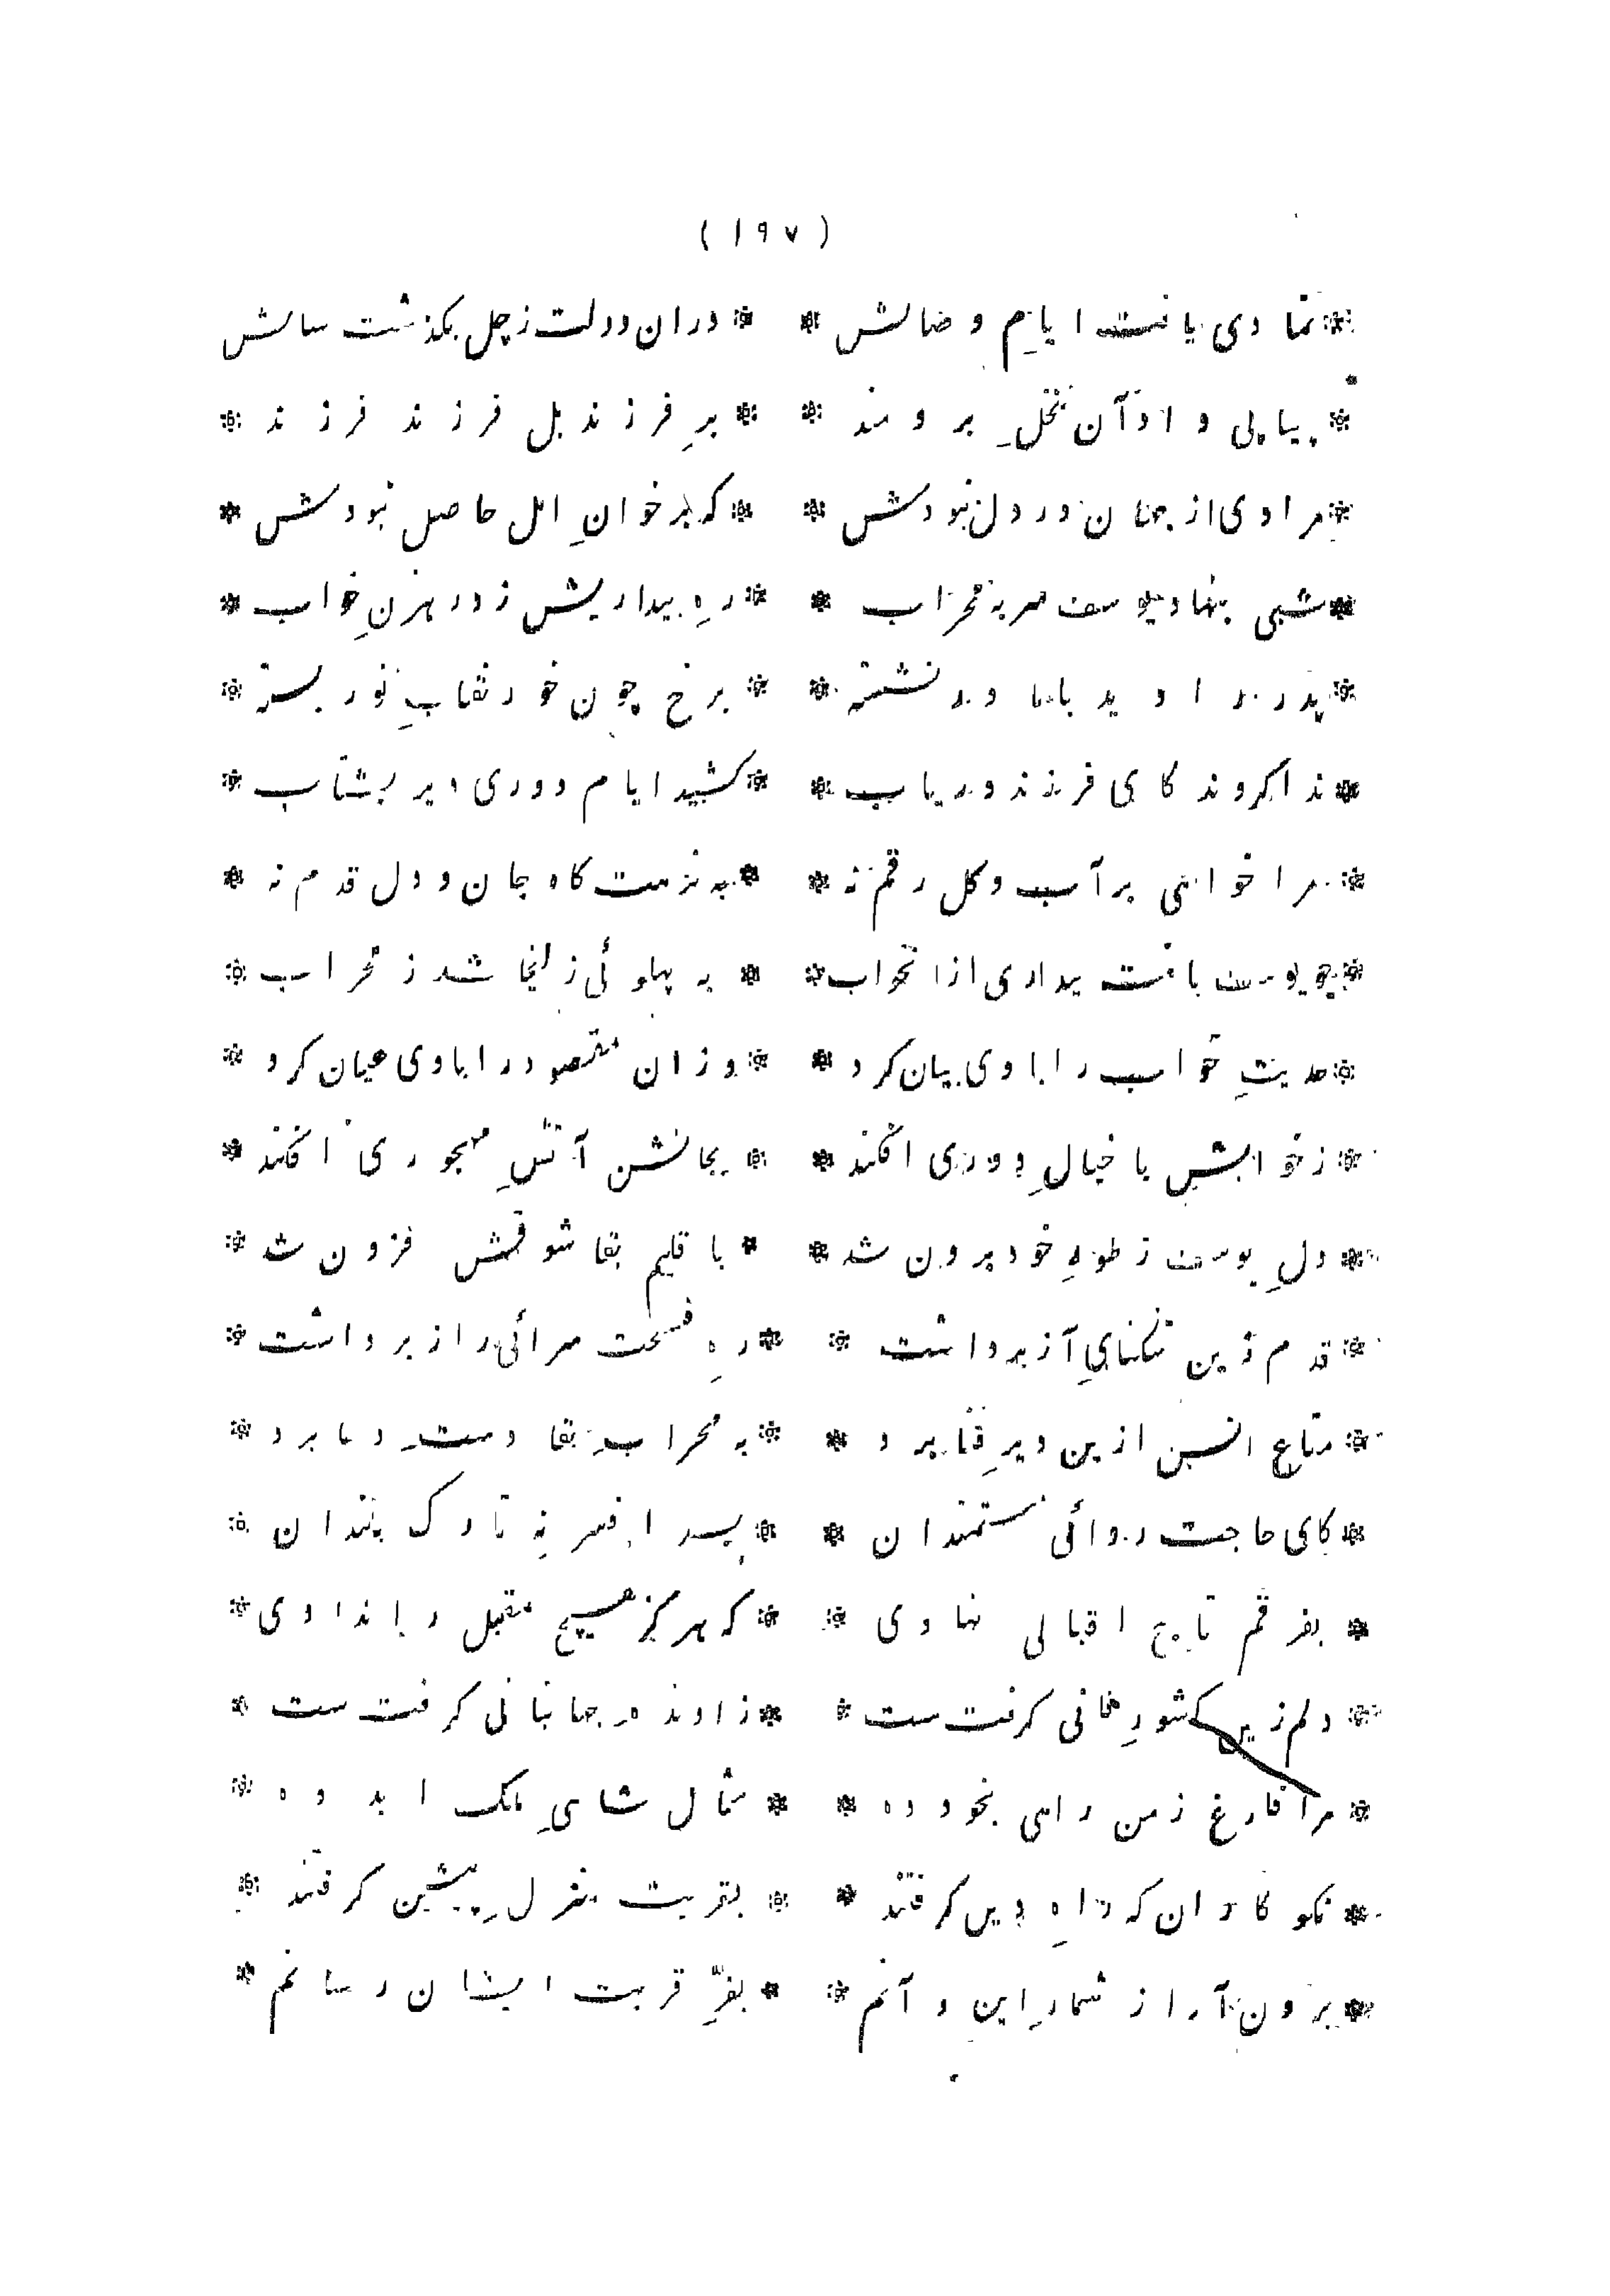 ( ١٩٧ )
* تمادی یافت ایامِ وصالش * * دران دولت ز چل بگذشت سالش
* پیاپی داد آن نخلِ برومند * * برِ فرزند بل فرزند فرزند *
* مرادی از جهان در دل نبودش * * که بر خوانِ امل حاصل نبودش *
* شبی بنهاد یوسف سر به محراب * * رهِ بیداریش زد رهزنِ خواب *
* پدر را دید با مادر نشسته * * برخ چون خور نقابِ نور بسته *
* ندا کردند کای فرزند دریاب * * کشید ایام دوری دیر بشتاب *
* مرا خواهی بر آب و گل رقم نه * * به نزهت گاه جان و دل قدم نه *
* چو یوسف یافت بیداری ازانخواب * * به پهلوئی زلیخا شد ز محراب *
* حدیثِ خواب را با وی بیان کرد * * وزان مقصود را با وی عیان کرد *
* ز خوابش با خیالِ دوری افکند * * بجانش آتشِ مهجوری افکند *
* دلِ یوسف ز طورِ خود برون شد * * باقلیم بقا شوقش فزون شد *
* قدم زین تنگنایِ آز برداشت * * رهِ فسحت سرائی راز برداشت *
* متاعِ انس ازین دیرِ فنا برد * * به محرابِ بقا دستِ دعا برد *
* کای حاجت روائی مستمندان * * بسر افسر نه تارک بلندان *
* بفرقم تاج اقبالی نهادی * * که هرگز هیچ مقبل را ندادی *
* دلم زین کشورِ فانی گرفت ست * * ز اوند ه جهانبانی گرفت ست *
* مرا فارغ ز من راهی بخود ده * * مثال شاهیِ ملک ابد ده *
* نکو کاران که راهِ دین گرفتند * * بقربت منزلِ پیشین گرفتند *
* برون آر از شمارِ این و آنم * * بفرِّ قربت ایشان رسانم *